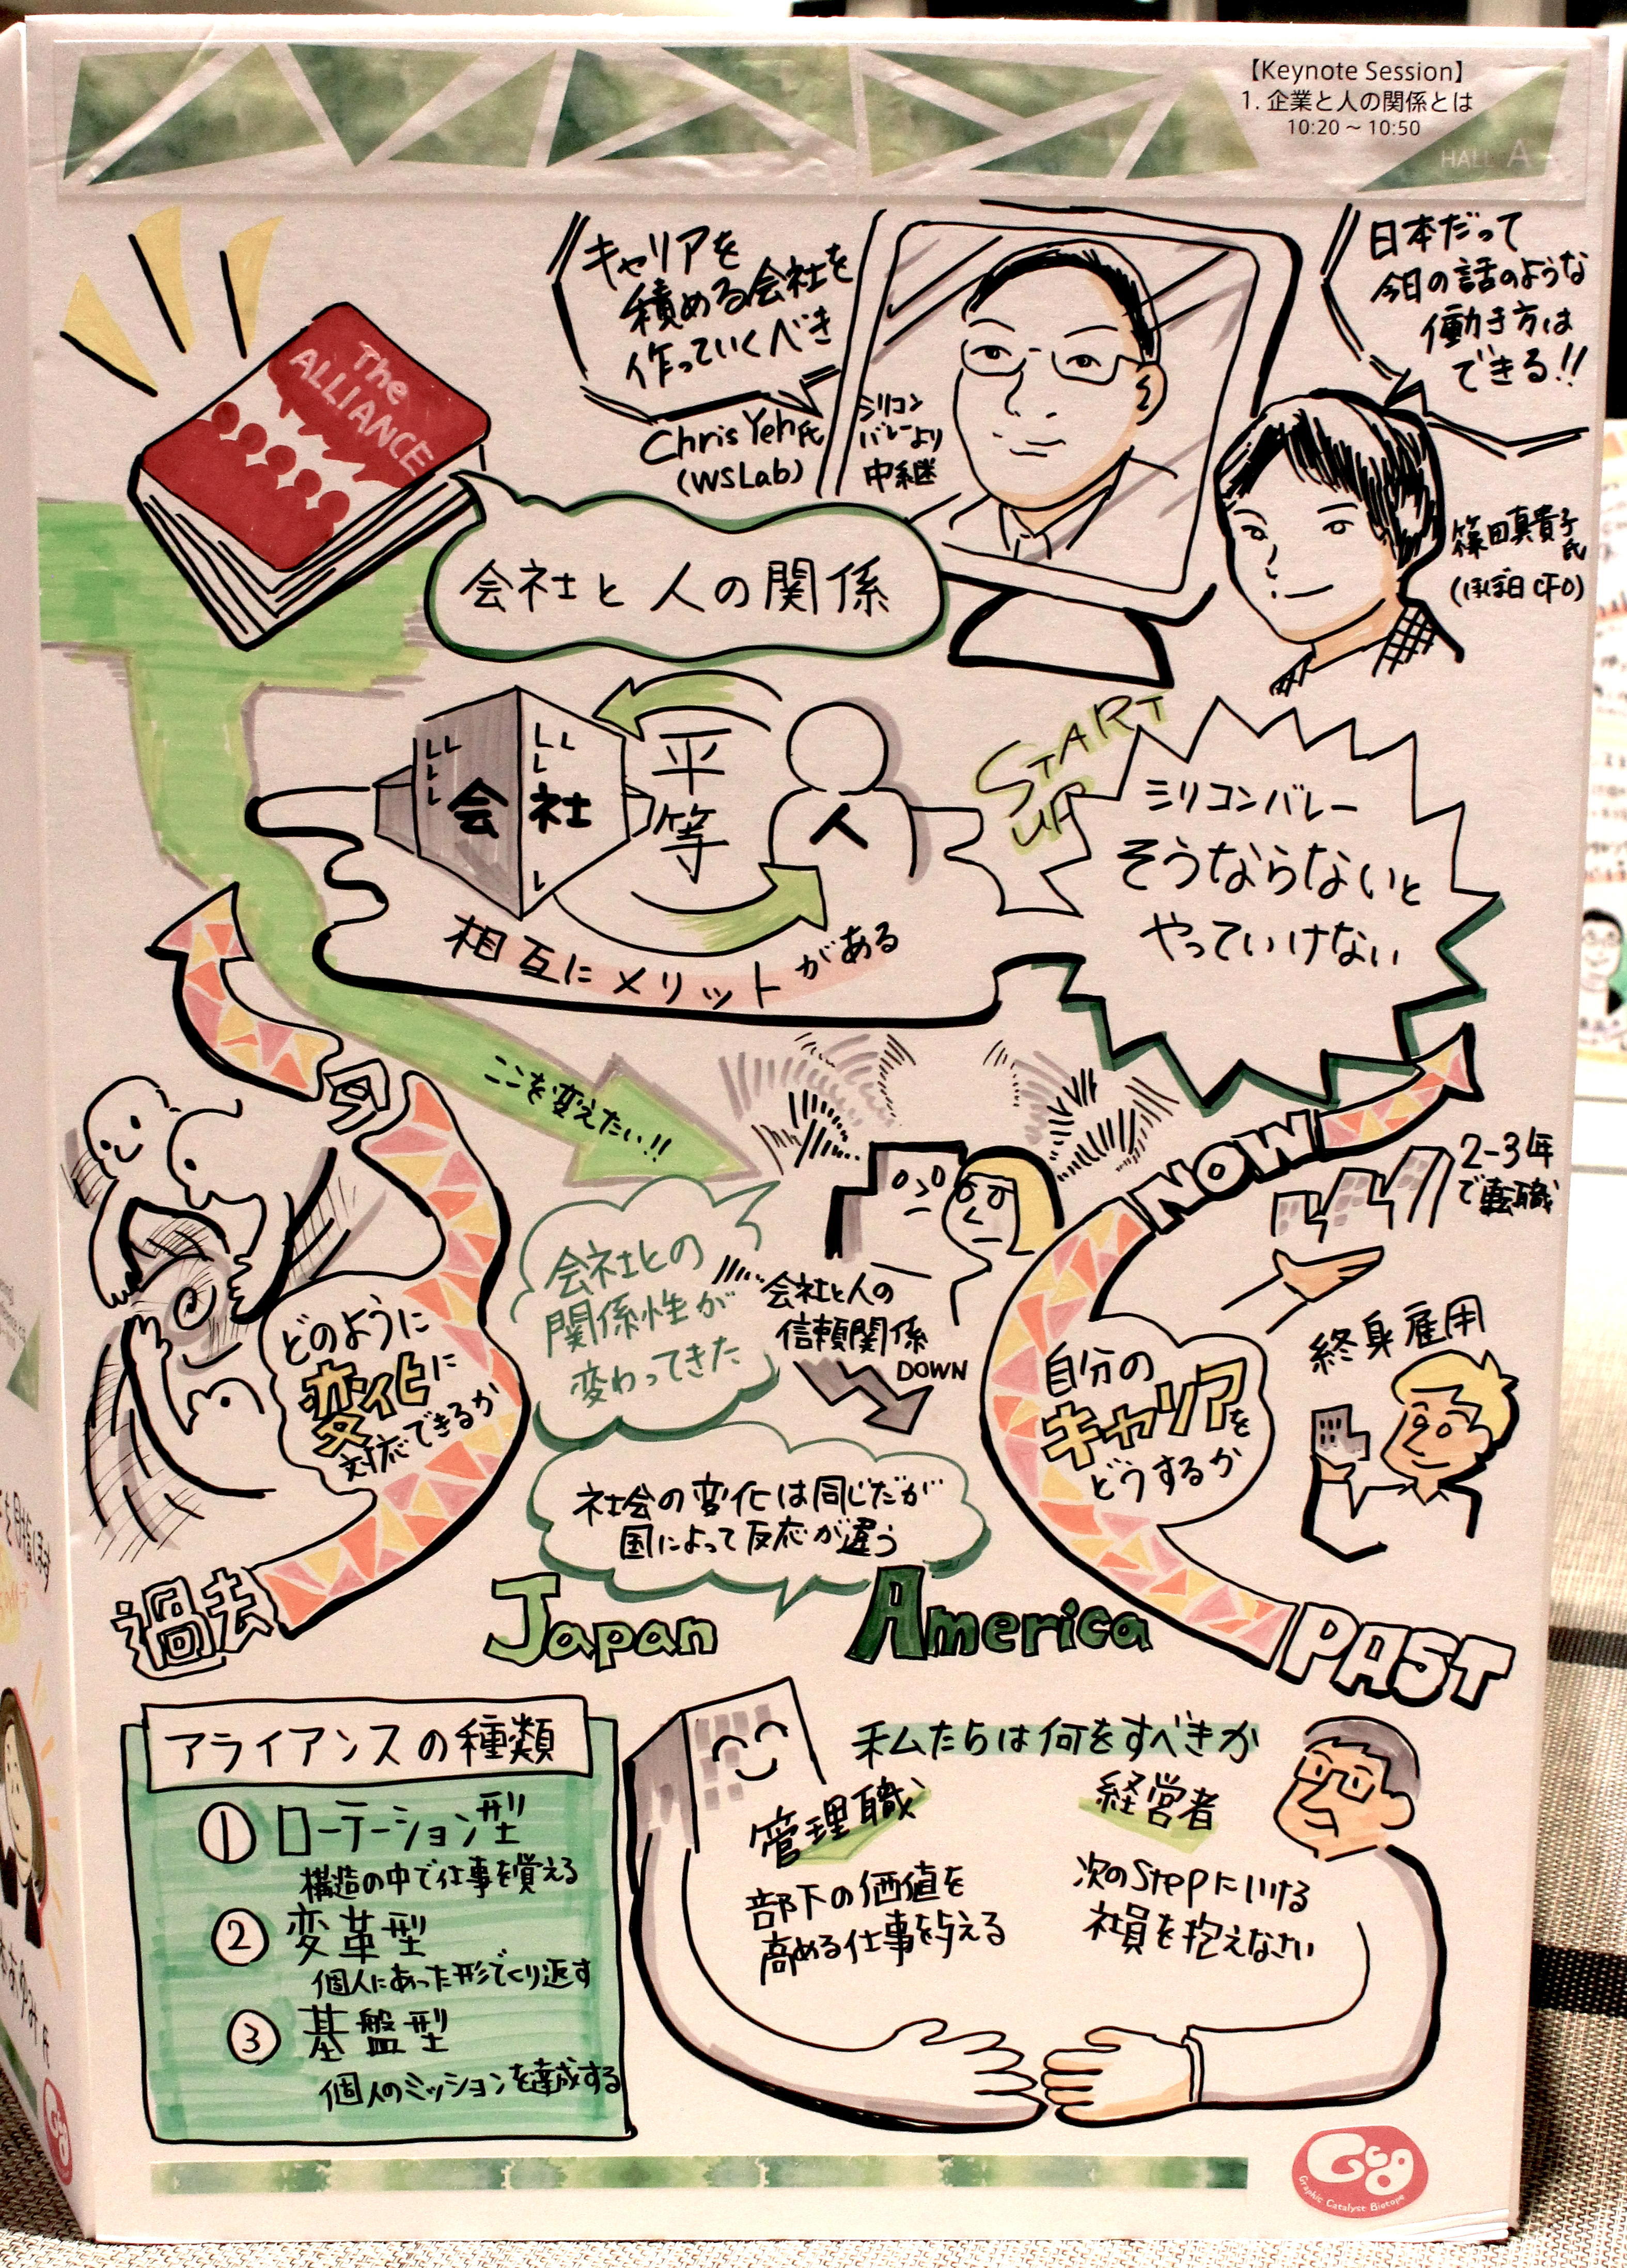 【Keynote Session】
1. 企業と人の関係とは
10:20 ~ 10:50
HALL A
The
ALLIANCE
キャリアを
積める会社を
作っていくべき
Chris Yeh氏
(WSLab)
シリコン
バレーより
中継
日本だって
今日の話のような
働き方は
できる!!
篠田真貴子
氏
(ほぼ日 CFO)
会社と人の関係
会社
平等
人
相互にメリットがある
START
UP
シリコンバレー
そうならないと
やっていけない
ここを変えたい!!
今
どのように
変化に
対応できるか
過去
会社との
関係性が
変わってきた
会社と人の
信頼関係
DOWN
社会の変化は同じだが
国によって反応が違う
Japan
America
NOW
2-3年
で転職
自分の
キャリアを
どうするか
終身雇用
PAST
アライアンスの種類
① ローテーション型
構造の中で仕事を覚える
② 変革型
個人にあった形でくり返す
③ 基盤型
個人のミッションを達成する
私たちは何をすべきか
管理職
部下の価値を
高める仕事を与える
経営者
次のStepにいける
社員を抱えなさい
GCB
Graphic Catalyst Biotope